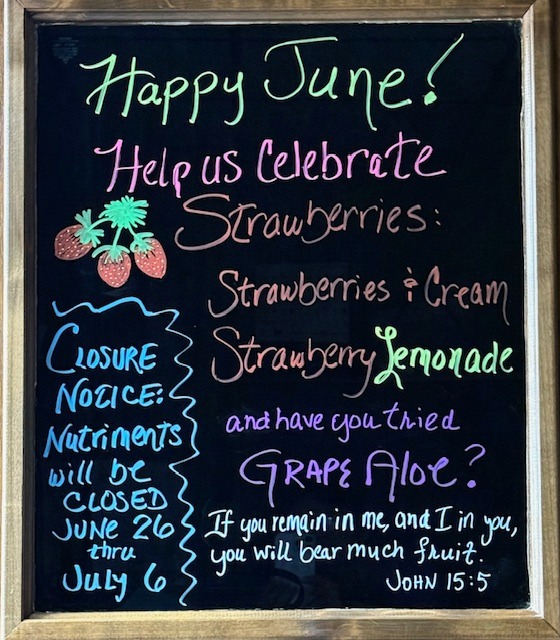 Happy June!
Help us Celebrate
Strawberries:
Strawberries & Cream
Strawberry Lemonade
and have you tried
GRAPE Aloe?
If you remain in me, and I in you,
you will bear much fruit.
JOHN 15:5
CLOSURE
NOTICE:
Nutriments
will be
CLOSED
JUNE 26
thru
July 6